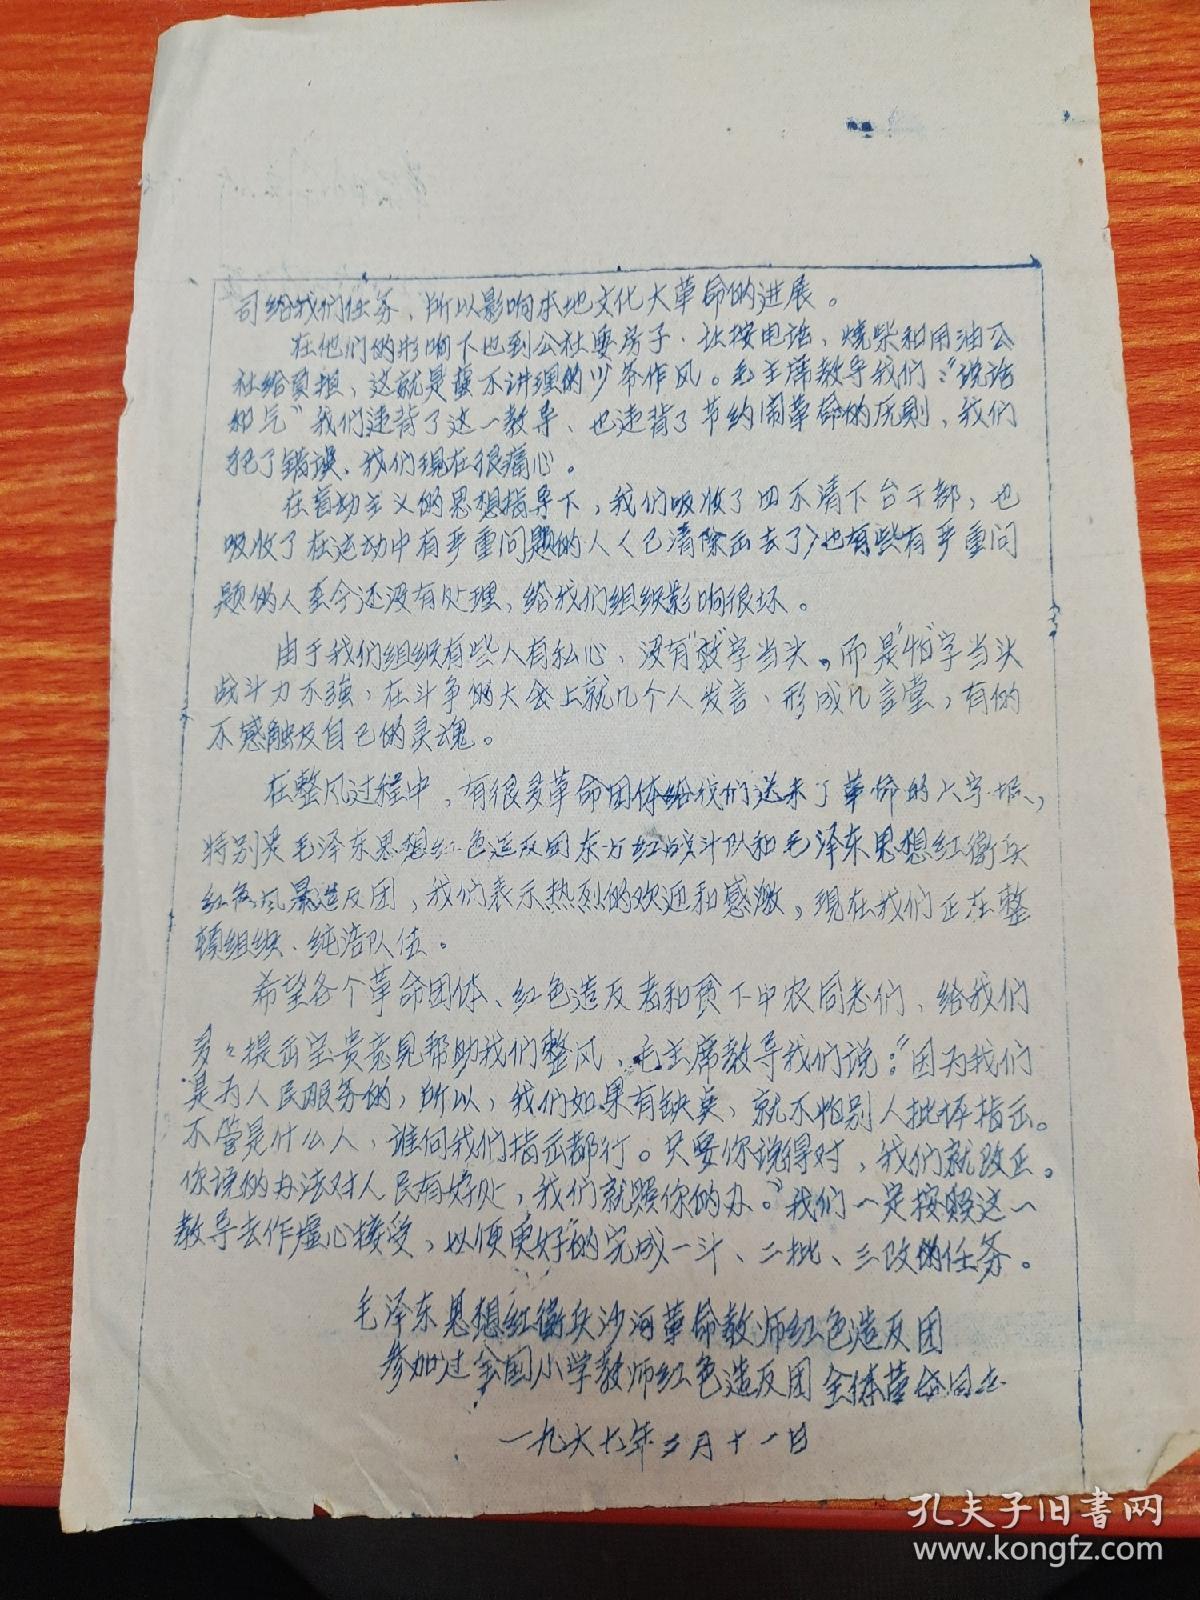 司给我们任务，所以影响本地文化大革命的进展。
在他们的影响下也到公社要房子、让按电话、烧柴和用油公
社给负担、这就是蛮不讲理的少爷作风。毛主席教导我们：“说话
和气”我们违背了这一教导、也违背了节约闹革命的原则，我们
犯了错误、我们现在很痛心。
在盲动主义的思想指导下，我们吸收了四不清下台干部，也
吸收了在运动中有严重问题的人（已清除出去了）也有些有严重问
题的人至今还没有处理，给我们组织影响很坏。
由于我们组织有些人有私心、没有“敢”字当头，而是“怕”字当头
战斗力不强，在斗争的大会上就几个人发言、形成几言堂，有的
不感触及自己的灵魂。
在整风过程中，有很多革命团体给我们送来了革命的大字报，
特别是毛泽东思想红色造反团东方红战斗队和毛泽东思想红衛兵
红色风暴造反团，我们表示热烈的欢迎和感激，現在我们正在整
顿组织、纯洁队伍。
希望各个革命团体、红色造反者和贫下中农同志们，给我们
多々提出宝贵意见帮助我们整风，毛主席教导我们说：“因为我们
是为人民服务的，所以，我们如果有缺点、就不怕别人批评指出。
不管是什么人，谁向我们指出都行。只要你说得对，我们就改正。
你说的办法对人民有好处，我们就照你的办。”我们一定按照这一
教导去作虚心接受，以便更好的完成一斗、二批、三改的任务。
毛泽东思想红衛兵沙河革命教师红色造反团
参加过全国小学教师红色造反团全体革命同志
一九六七年三月十一日
孔夫子旧書网
www.kongfz.com